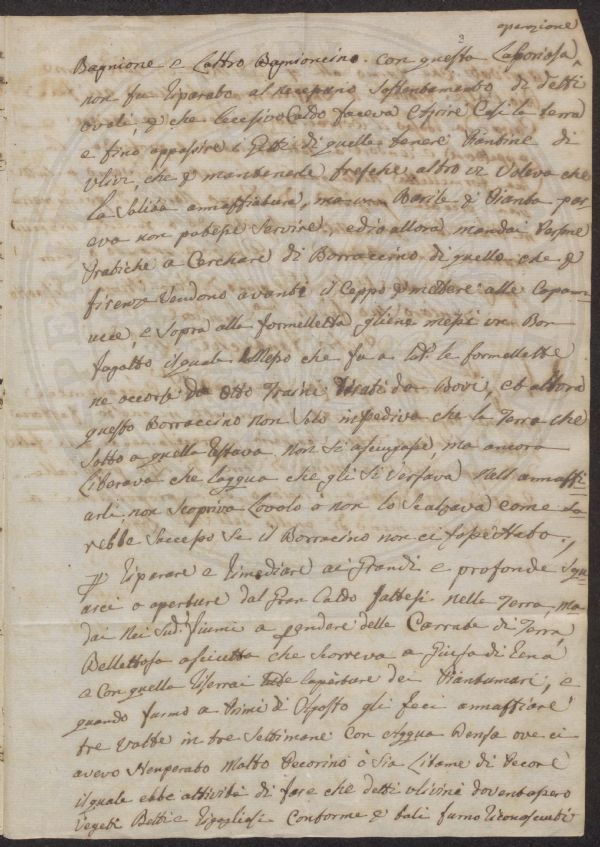 operazione
Bagnione e l'altro Bagnioncino. con questa Laboriosa
non fu riparato al necessario Sostentamento di detti
ovoli, e che lecesivo Caldo faceva Aprire Così la terra
e fino appasire i Getti di quelle tenere Piantine di
Ulivi, che p mantenerle fresche altro vi Voleva che
la Solita annaffiatura, ma un Barile p Pianta par
eva non potesse Servire, ed io allora mandai Persone
Pratiche a Cerchare di Borraccino di quello che p
firenze Vendono avanti il Ceppo p mettere alle Capan
nucce, e Sopra alle formelletta gliene messi un Bor
fagotto il quale Messo che fu a tutte le formellette
ne accorse da Otto Traini tirati da Bovi, et allora
questo Borraccino non Solo impediva che la Terra che
Sotto a quella restava non Si asciugasse, ma ancora
Liberava che laqqua che gli Si Versava nell annaffi
arli, non Scopriva Lovolo o non lo Scalzava come Sa
rebbe Successo Se il Borracino non ci fosse Stato.
p riparare e rimediare ai Grandi e profonde Squ
arci o aperture dal Gran Caldo fattesi nelle Terra, ma
dai nei Sud. fiumi a prendere delle Carrate di Terra
Bellettosa asciutta che Scorreva a Guisa di rena
e Con quella riserrai tutte laperture dei Piantumari, e
quando fumo a Primi di Agosto gli feci annaffiare
tre Volte in tre Settimane Con Acqua Densa ove ci
avevo Stenperato Molto Pecorino ò Sia Litame di Pecore
il quale ebbe attività di fare che detti Ulivini doventassero
Vegeti Belli e rigogliosi Conforme p tali furno riconosciuti